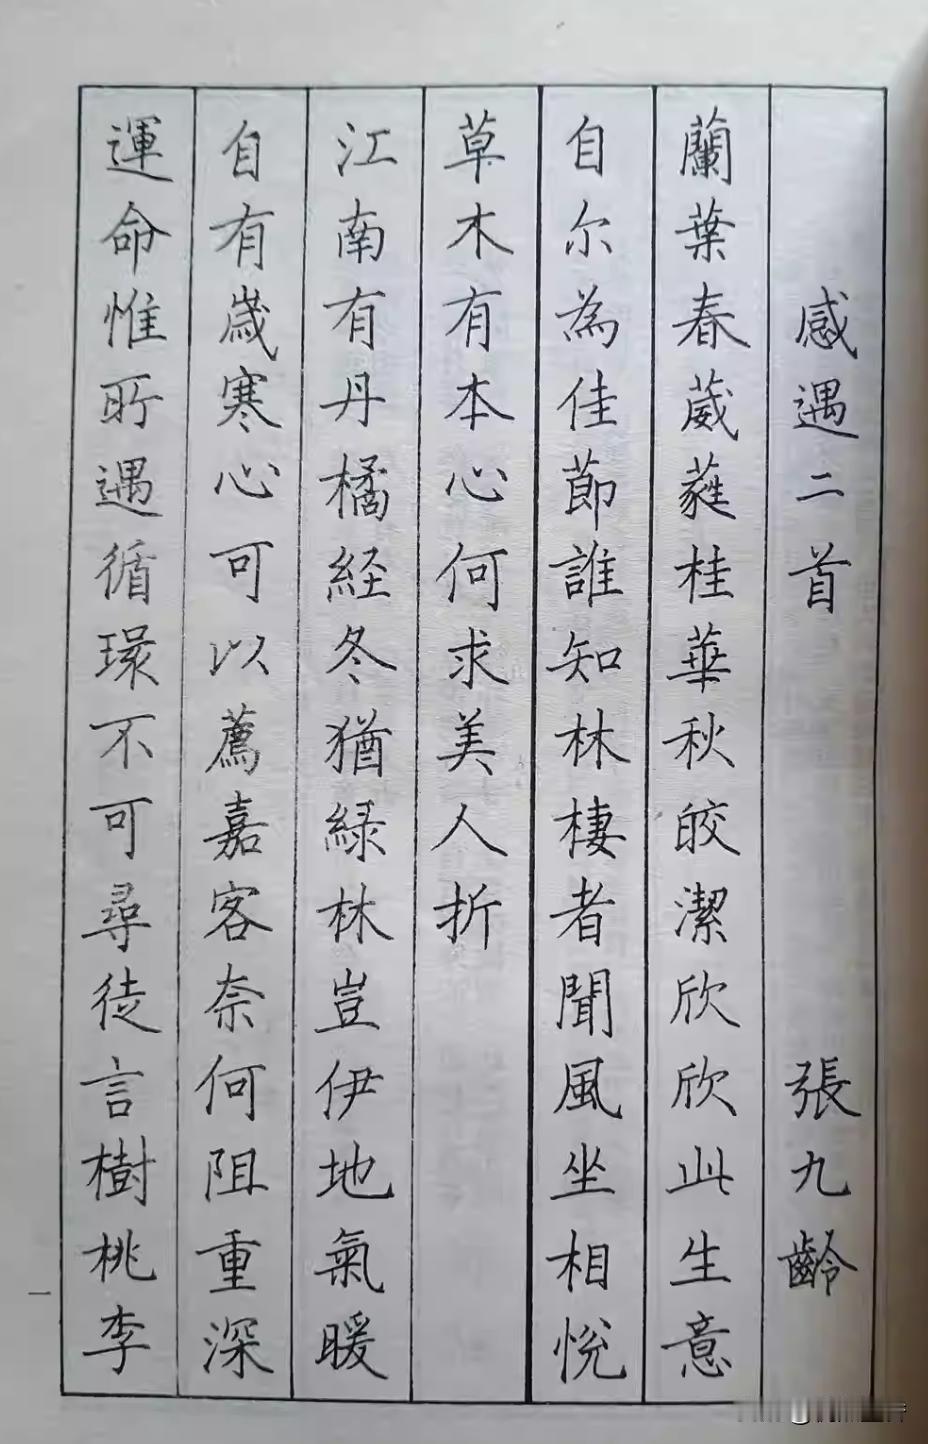 感遇二首 張九齡
蘭葉春葳蕤桂華秋皎潔欣欣此生意
自尔為佳節誰知林棲者聞風坐相悅
草木有本心何求美人折
江南有丹橘経冬猶綠林豈伊地氣暖
自有歲寒心可以薦嘉客奈何阻重深
運命惟所遇循環不可尋徒言樹桃李
一